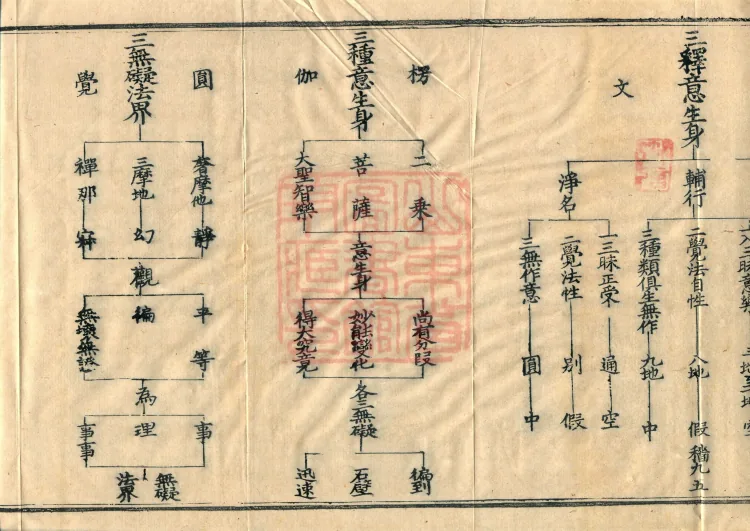 三釋意生身
文
輔行
淨名
二覺法自性 八地 假
三種類俱生無作 九地 中
一三昧正受 通 空
二覺法性 別 假
三無作意 圓 中
三種意生身
楞伽
二乘
菩薩
大聖智樂
意生身
尚有分段
妙能變化
得大究竟
各三無礙
徧到
石壁
迅速
三無礙法界
圓覺
奢摩他 靜
三摩地 幻
禪那 寂
觀
平等
徧
無壞無
為
事
理
事事
無礙
法界